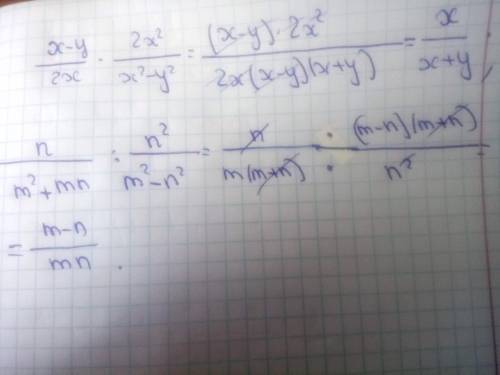 (x-y)/(2x) · (2x²)/(x²-y²) = ((x-y)·2x²)/(2x(x-y)(x+y)) = x/(x+y);
n/(m²+mn) : n²/(m²-n²) = n/(m(m+n)) · ((m-n)(m+n))/n² =
= (m-n)/(mn).